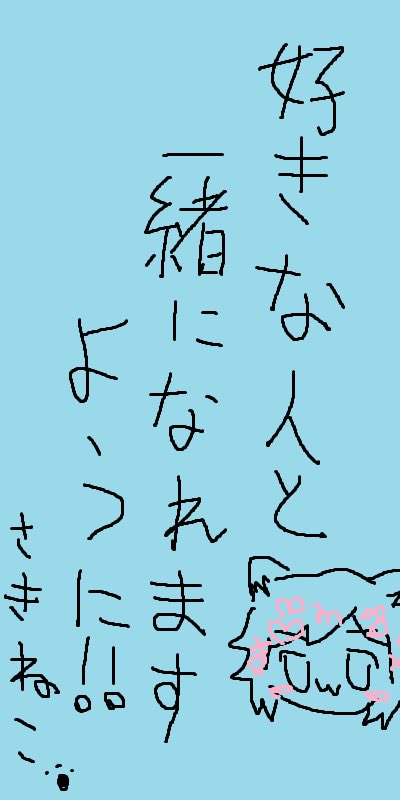 好きな人と
一緒になれます
ように!!
さきねこ